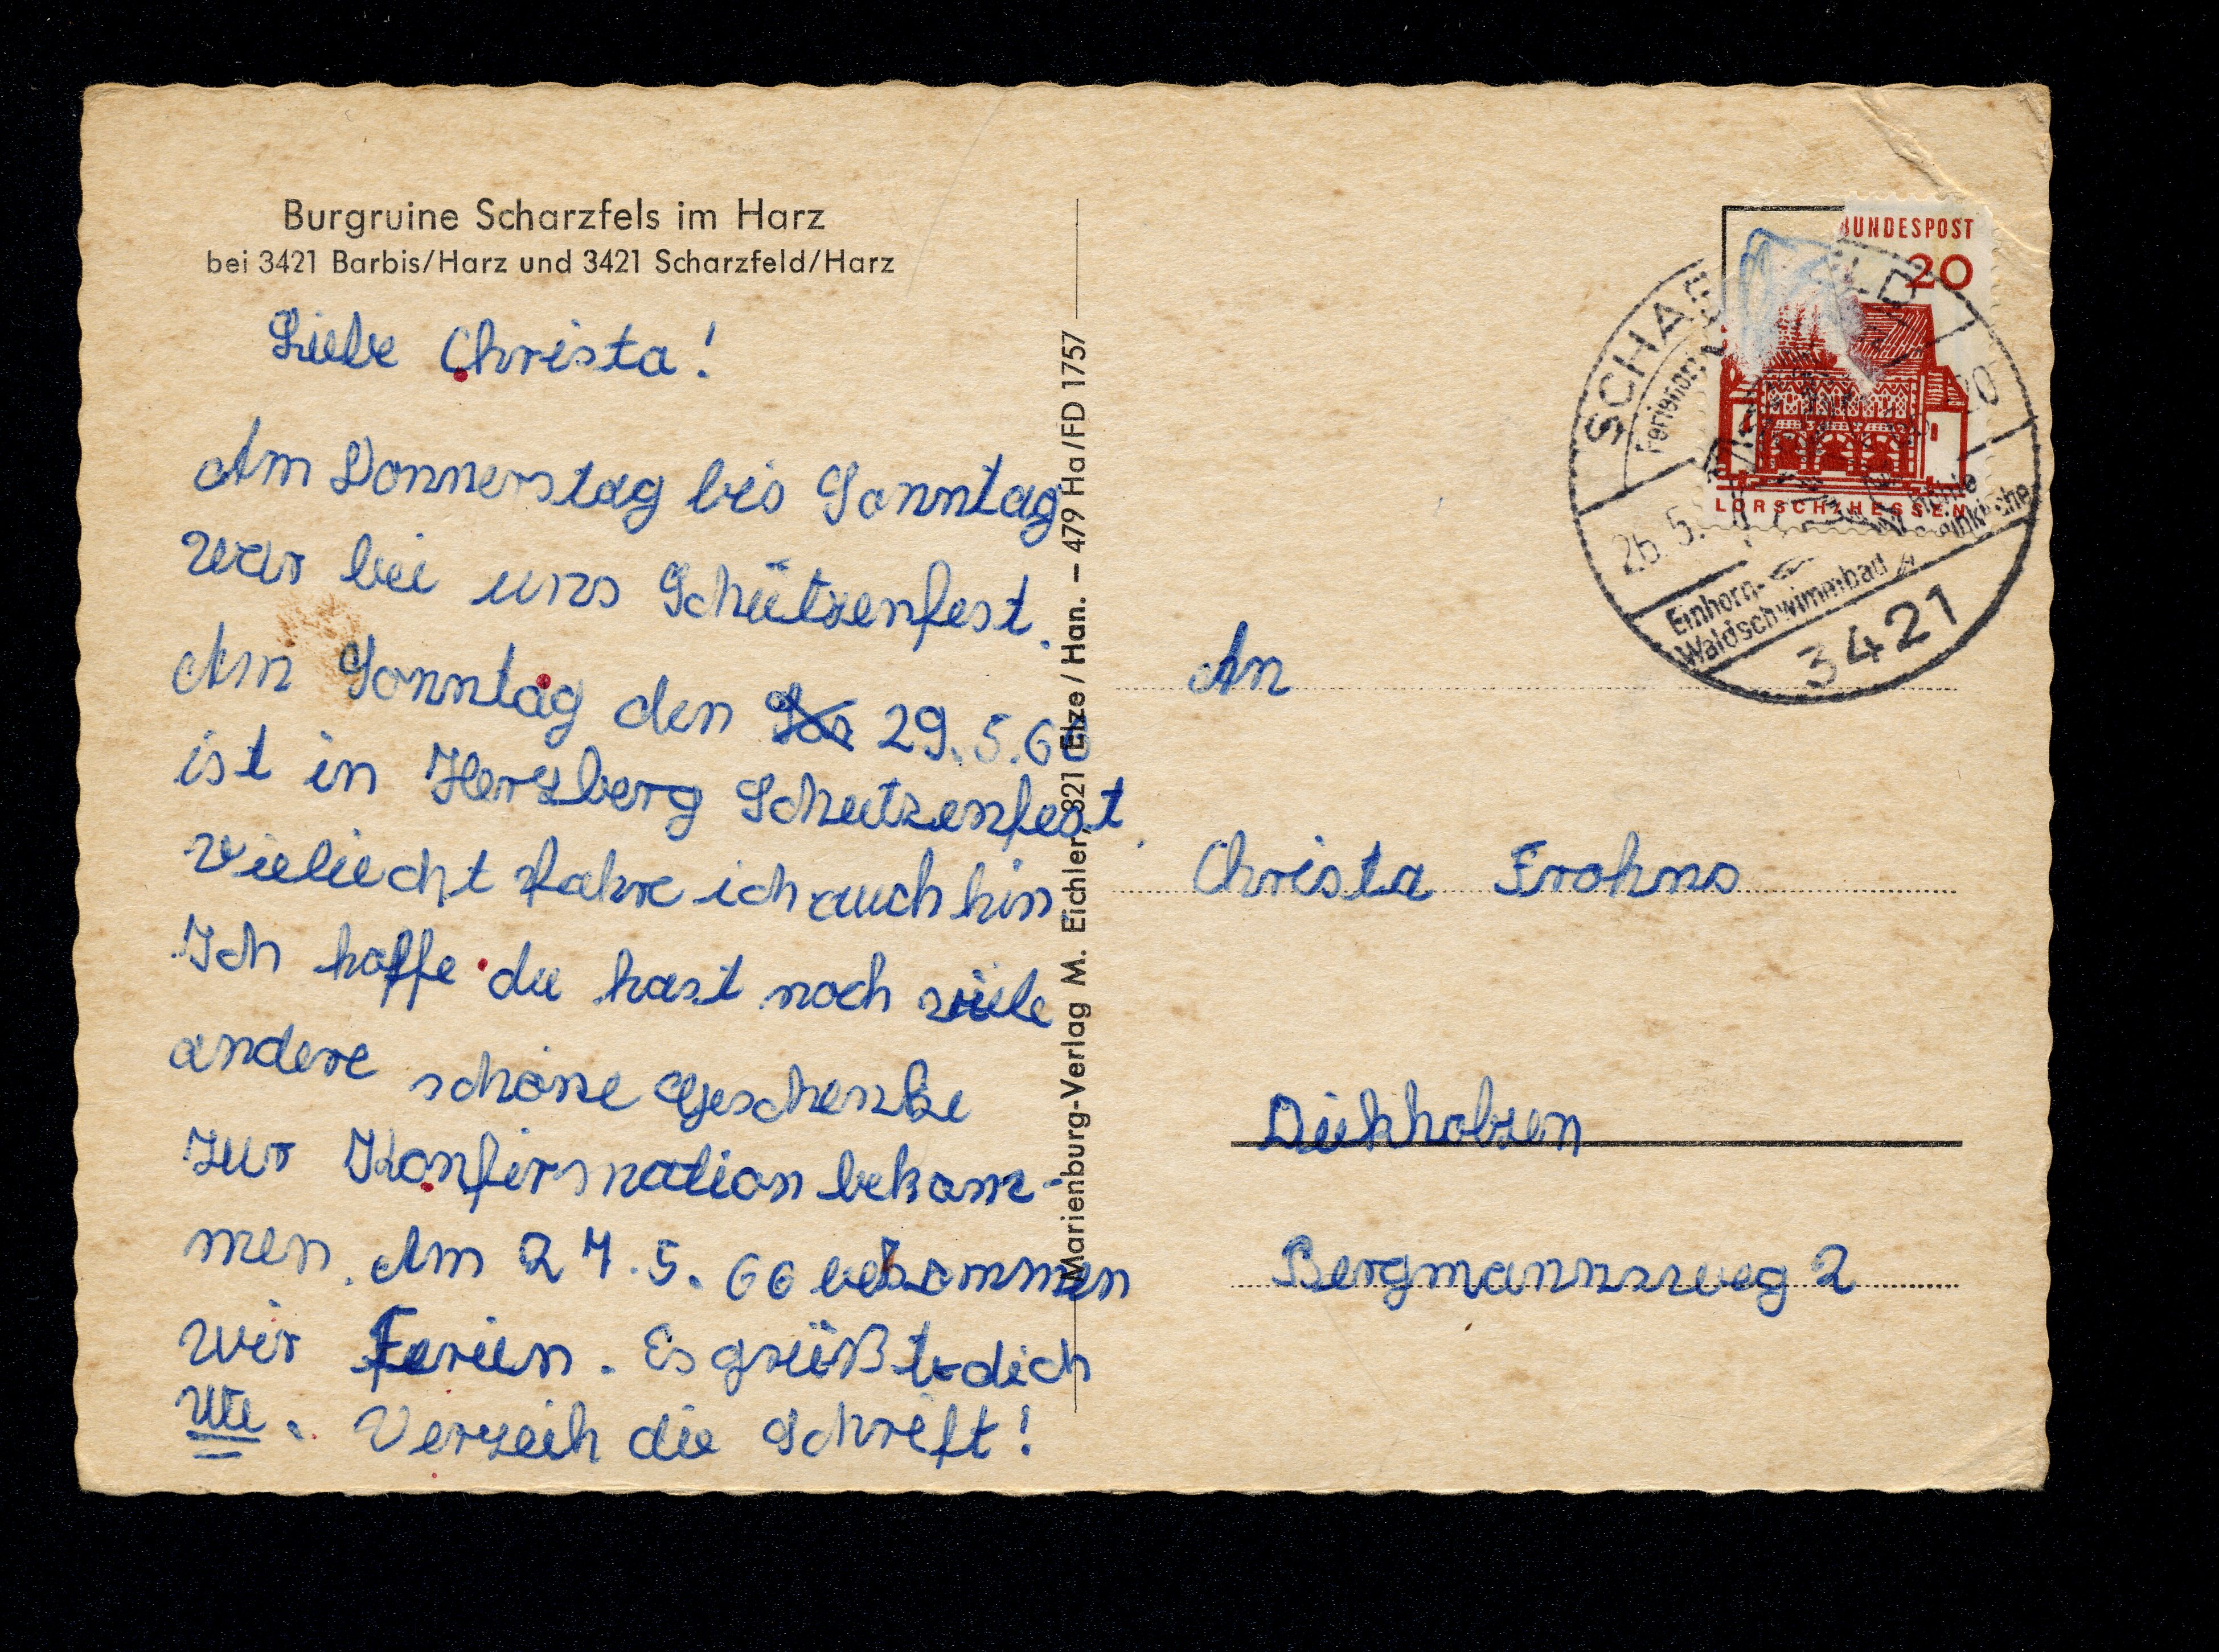 Burgruine Scharzfels im Harz
bei 3421 Barbis/Harz und 3421 Scharzfeld/Harz
Liebe Christa!
Am Donnerstag bis Sonntag
war bei uns Schützenfest.
Am Sonntag den 29.5.66
ist in Herzberg Schutzenfest.
Vieliecht fahre ich auch hin
Ich hoffe du hast noch viele
andere schöne Geschenke
zur Konfirmation bekom-
men. Am 27.5.66 bekommen
wir Ferien. Es grüßt dich
Ute. Verzeih die Schrift!
Marienburg-Verlag M. Eichler, 321 Elze / Han. – 479 Ha/FD 1757
BUNDESPOST
20
LORSCH/HESSEN
26. 5.
Einhorn-
Waldschwimmbad
3421
An
Christa Frohns
Diekholzen
Bergmannsweg 2